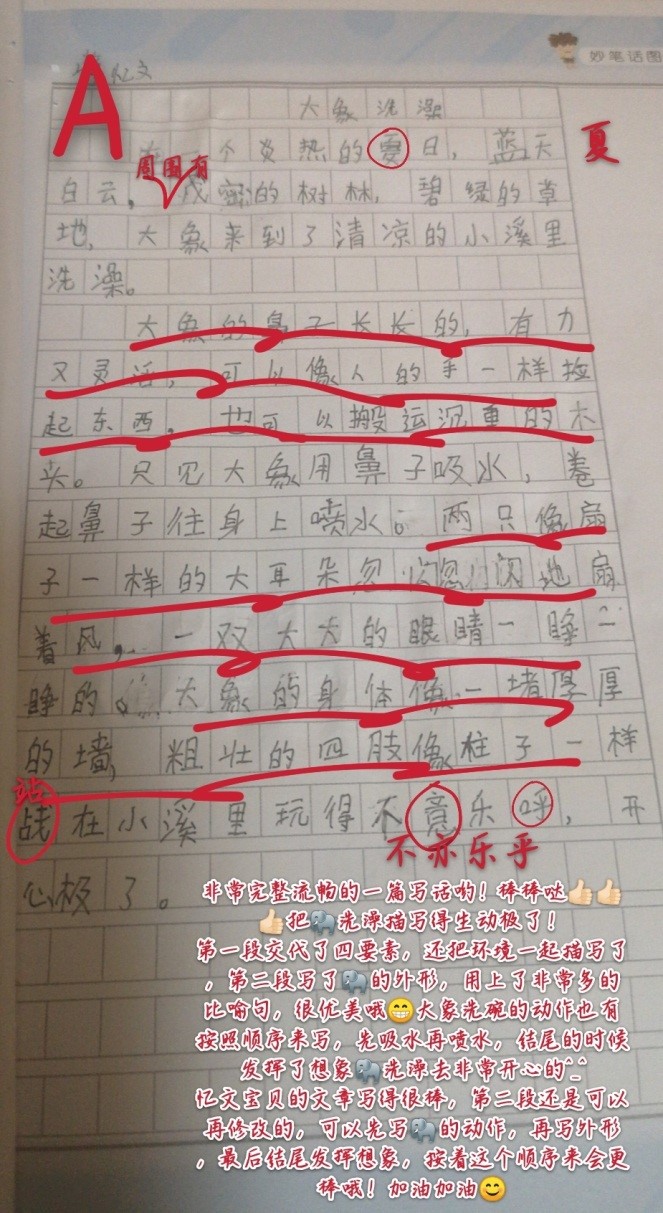 妙笔话图
忆文
A
大象洗澡
个炎热的夏日，蓝天
夏
周围有
白云，茂密的树林，碧绿的草
地，大象来到了清凉的小溪里
洗澡。
大象的鼻子长长的，有力
又灵活，可以像人的手一样捡
起东西，也可以搬运沉重的木
头。只见大象用鼻子吸水，卷
起鼻子往身上喷水。两只像扇
子一样的大耳朵忽闪忽闪地扇
着风，一双大大的眼睛一睁一
睁的。大象的身体像一堵厚厚
的墙，粗壮的四肢像柱子一样
站
战在小溪里玩得不意乐呼，开
不亦乐乎
心极了。
非常完整流畅的一篇写话哟！棒棒哒👍👍
👍把🐘洗澡描写得生动极了！
第一段交代了四要素，还把环境一起描写了
，第二段写了🐘的外形，用上了非常多的
比喻句，很优美哦😁大象洗碗的动作也有
按照顺序来写，先吸水再喷水，结尾的时候
发挥了想象🐘洗澡去非常开心的^_^
忆文宝贝的文章写得很棒，第二段还是可以
再修改的，可以先写🐘的动作，再写外形
，最后结尾发挥想象，按着这个顺序来会更
棒哦！加油加油😊